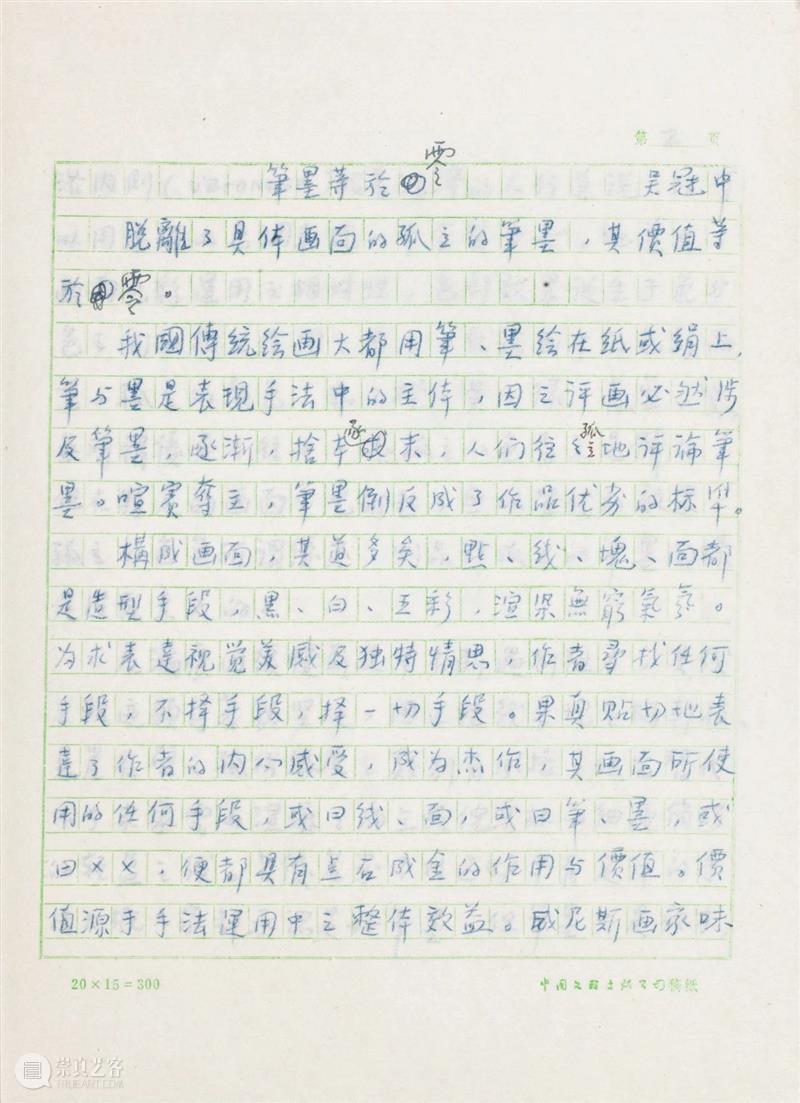 第 2 页
筆墨等於零 吴冠中
脱離了具体画面的孤立的筆墨，其價值等
於零。
我國傳統绘画大都用筆、墨绘在紙或绢上，
筆与墨是表现手法中的主体，因之评画必然涉
及筆墨，逐漸，捨本逐末，人们往往孤立地评論筆
墨。喧賓奪主，筆墨倒反成了作品优劣的标準。
構成画面，其道多矣，點、线、塊、面都
是造型手段，黑、白、五彩，渲染無窮氣氛。
为求表達视觉美感及独特情思，作者尋找任何
手段，不择手段，择一切手段。果真贴切地表
達了作者的内心感受，成为杰作，其画面所使
用的任何手段，或曰线、面，或曰筆、墨，或
曰××，便都具有点石成金的作用与價值。價
值源于手法運用中之整体效益。威尼斯画家味
20×15=300 中国文联出版公司稿纸
崇真艺客
TRUEART.COM